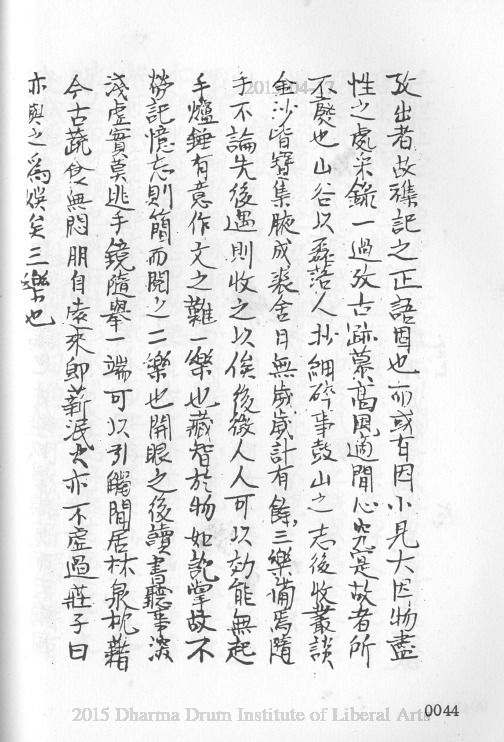 攷出者故襍記之正語因也而或有因小見大因物盡
性之處采錄一過攷古跡慕高風適閒心究是故者所
不廢也山谷以磊落人抄細碎事鼓山之志後收叢談
金沙皆寶集腋成裘舍日無歲歲計有餘三樂備焉隨
手不論先後遇則收之以俟後徵人人可以効能無起
手爐錘有意作文之難一樂也藏智於物如託掌故不
勞記憶忘則簡而閱之二樂也開眼之後讀書聽事深
淺虛實莫逃手鏡隨舉一端可以引觸閒居林泉枕藉
今古蔬食無悶朋自遠來即薪泯火亦不虛過莊子曰
亦與之為娛矣三樂也
2015-04-17
0044
2015 Dharma Drum Institute of Liberal Arts